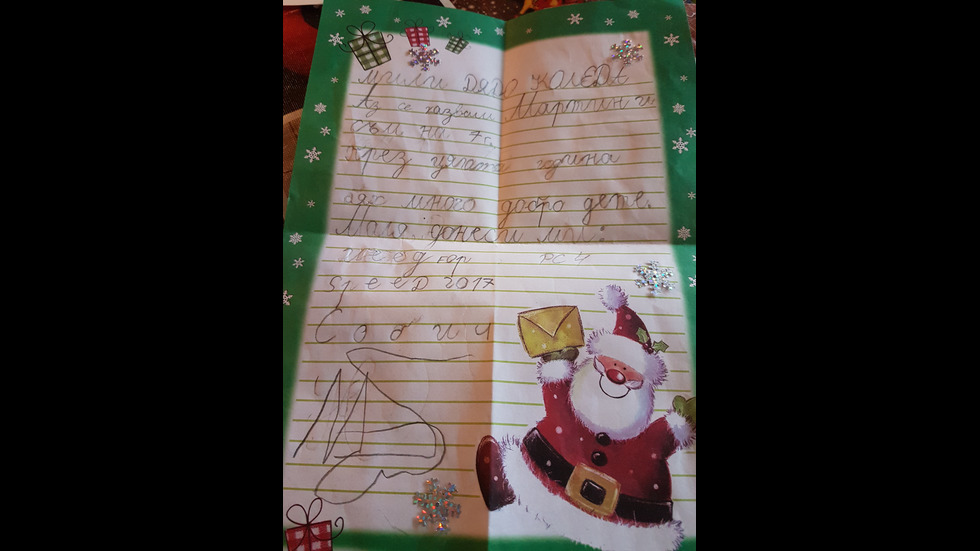 мили ДЯДО КОЛЕДА
Аз се казвам Мартин и
съм на 7г.
през цялата година
бях много добро дете.
Моля донеси ми:
FOP PC 4
SpeeD 2017